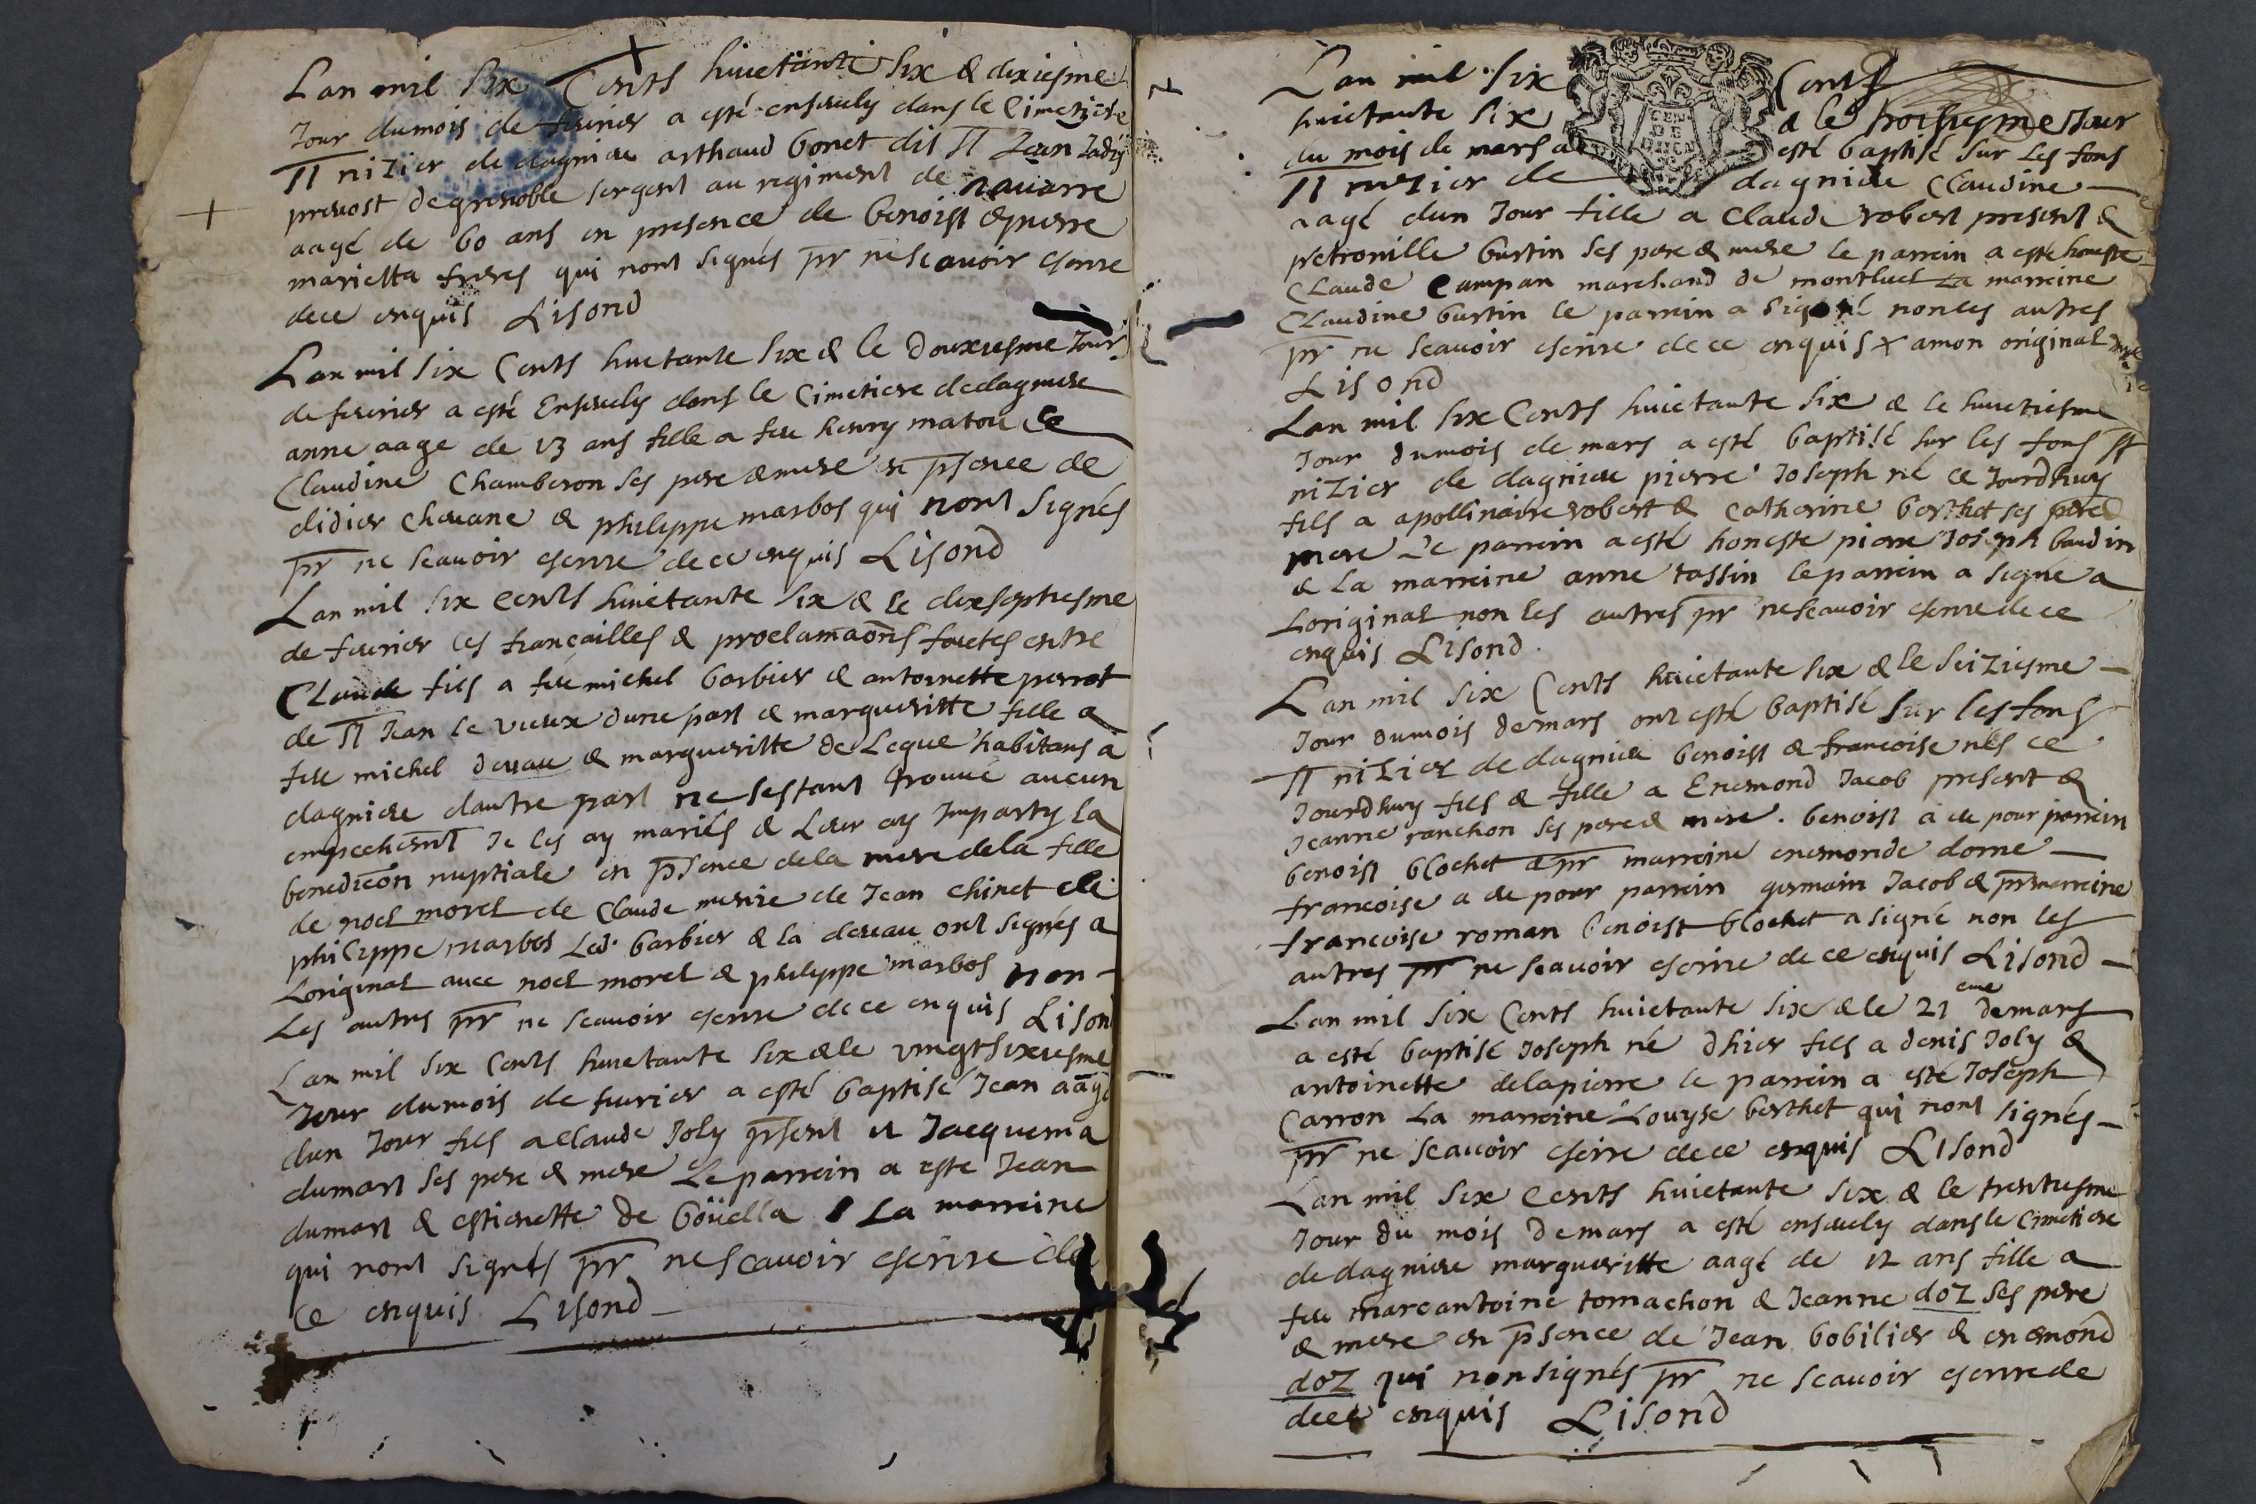 Lan mil six Cents huictante six & dixiesme
Jour dumois de feurier a esté enseuely dans le Cimetiere
St nizier de dagnieu arthaud bonet dit St Jean Jadis
preuost degrenoble sergent au regiment de nauarre
aagé de 60 ans en presence de benoist & pierre
marietta freres qui nont signés pr ne scauoir escrire
dece enquis Lisond
Lan mil six Cents huictante six & le douxiesme Jour
de feurier a esté Enseuely dans le Cimetiere dedagnieu
anne aage de 13 ans fille a feu henry matou &
Claudine Chamberon ses pere & mere en psence de
didier cheuane & philippe marbos qui nont signés
pr ne scauoir escrire dece enquis Lisond
Lan mil six cents huictante six & le dixseptiesme
de feurier les fiancailles & proclamaons faictes entre
Claude fils a feu michel barbier & antoinette perrot
de St Jean le vieux dune part & margueritte fille a
feu michel deuau & margueritte de Leque habitans a
dagnieu dautre part ne sestant trouué aucun
empechemt Je les ay mariés & Leur ay Imparty la
benedicon nuptiale en psence dela mere dela fille
de noel morel de Claude de Jean chinet &
philippe marbos Led. barbier & la deuau ont signés a
Loriginal auec noel morel & philippe marbos non
Les autres pr ne scauoir escrire dece enquis Lisond
Lan mil six Cents huictante six & le vingtsixiesme
Jour dumois de feurier a esté baptisé Jean aagé
dun Jour fils a Claude Joly present & Jacquema
dumart ses pere & mere Le parrein a este Jean
dumart & estienette de boüella La marreine
qui nont signés pr ne scauoir escrire de
Ce enquis Lisond
Lan mil six Cents
huictante six & le troisiesme Jour
du mois de mars a esté baptisé sur les fons
St nizier de dagnieu Claudine
aagé dun Jour fille a Claude robert present &
petronille burtin ses pere & mere le parrein a esté honeste
Claude Campan marchand de montluel La marreine
Claudine burtin le parrein a signé non les autres
pr ne scauoir escrire de ce enquis x amon original
Lisond
Lan mil six Cents huictante six & le huictiesme
Jour dumois de mars a esté baptisé sur les fons St
nizier de dagnieu pierre Joseph né ce Jourdhuy
fils a apollinaire robert & Catherine berthet ses pere &
mere Le parrein a esté honeste pierre Joseph baudin
& La marreine anne tassin le parrein a signe a
Loriginal non les autres pr ne scauoir escrire de ce
enquis Lisond.
Lan mil six Cents huictante six & le seiziesme
Jour dumois demars ont esté baptisé sur les fons
St nizier de dagnieu benoist & francoise nés ce
Jourdhuy fils & fille a Enemond Jacob present &
Jeanne ranchon ses pere & mere. benoist a eu pour parrein
benoist blochet & pr marreine enemonde dorne
francoise a eu pour parrein germain Jacob & pr marreine
francoise roman benoist blochet a signé non les
autres pr ne scauoir escrire de ce enquis Lisond
Lan mil six Cents huictante six & le 21 eme demars
a esté baptisé Joseph né dhier fils a denis Joly &
antoinette delapierre le parrein a esté Joseph
Carron La marreine Louyse berthet qui nont signés
pr ne scauoir escrire dece enquis Lisond
Lan mil six Cents huictante six & le trentiesme
Jour du mois demars a esté enseuely dans le Cimetiere
dedagnieu margueritte aagé de 12 ans fille a
feu marcantoine tomachon & Jeanne doz ses pere
& mere en psence de Jean bobilier & enemond
doz qui non signés pr ne scauoir escrire de
dece enquis Lisond